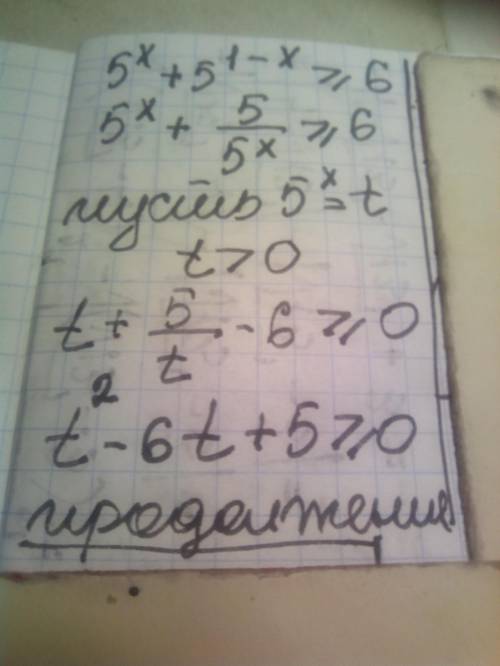 5^x + 5^{1-x} ≥ 6
5^x + 5/5^x ≥ 6
пусть 5^x = t
t > 0
t + 5/t - 6 ≥ 0
t^2 - 6t + 5 ≥ 0
продолжения